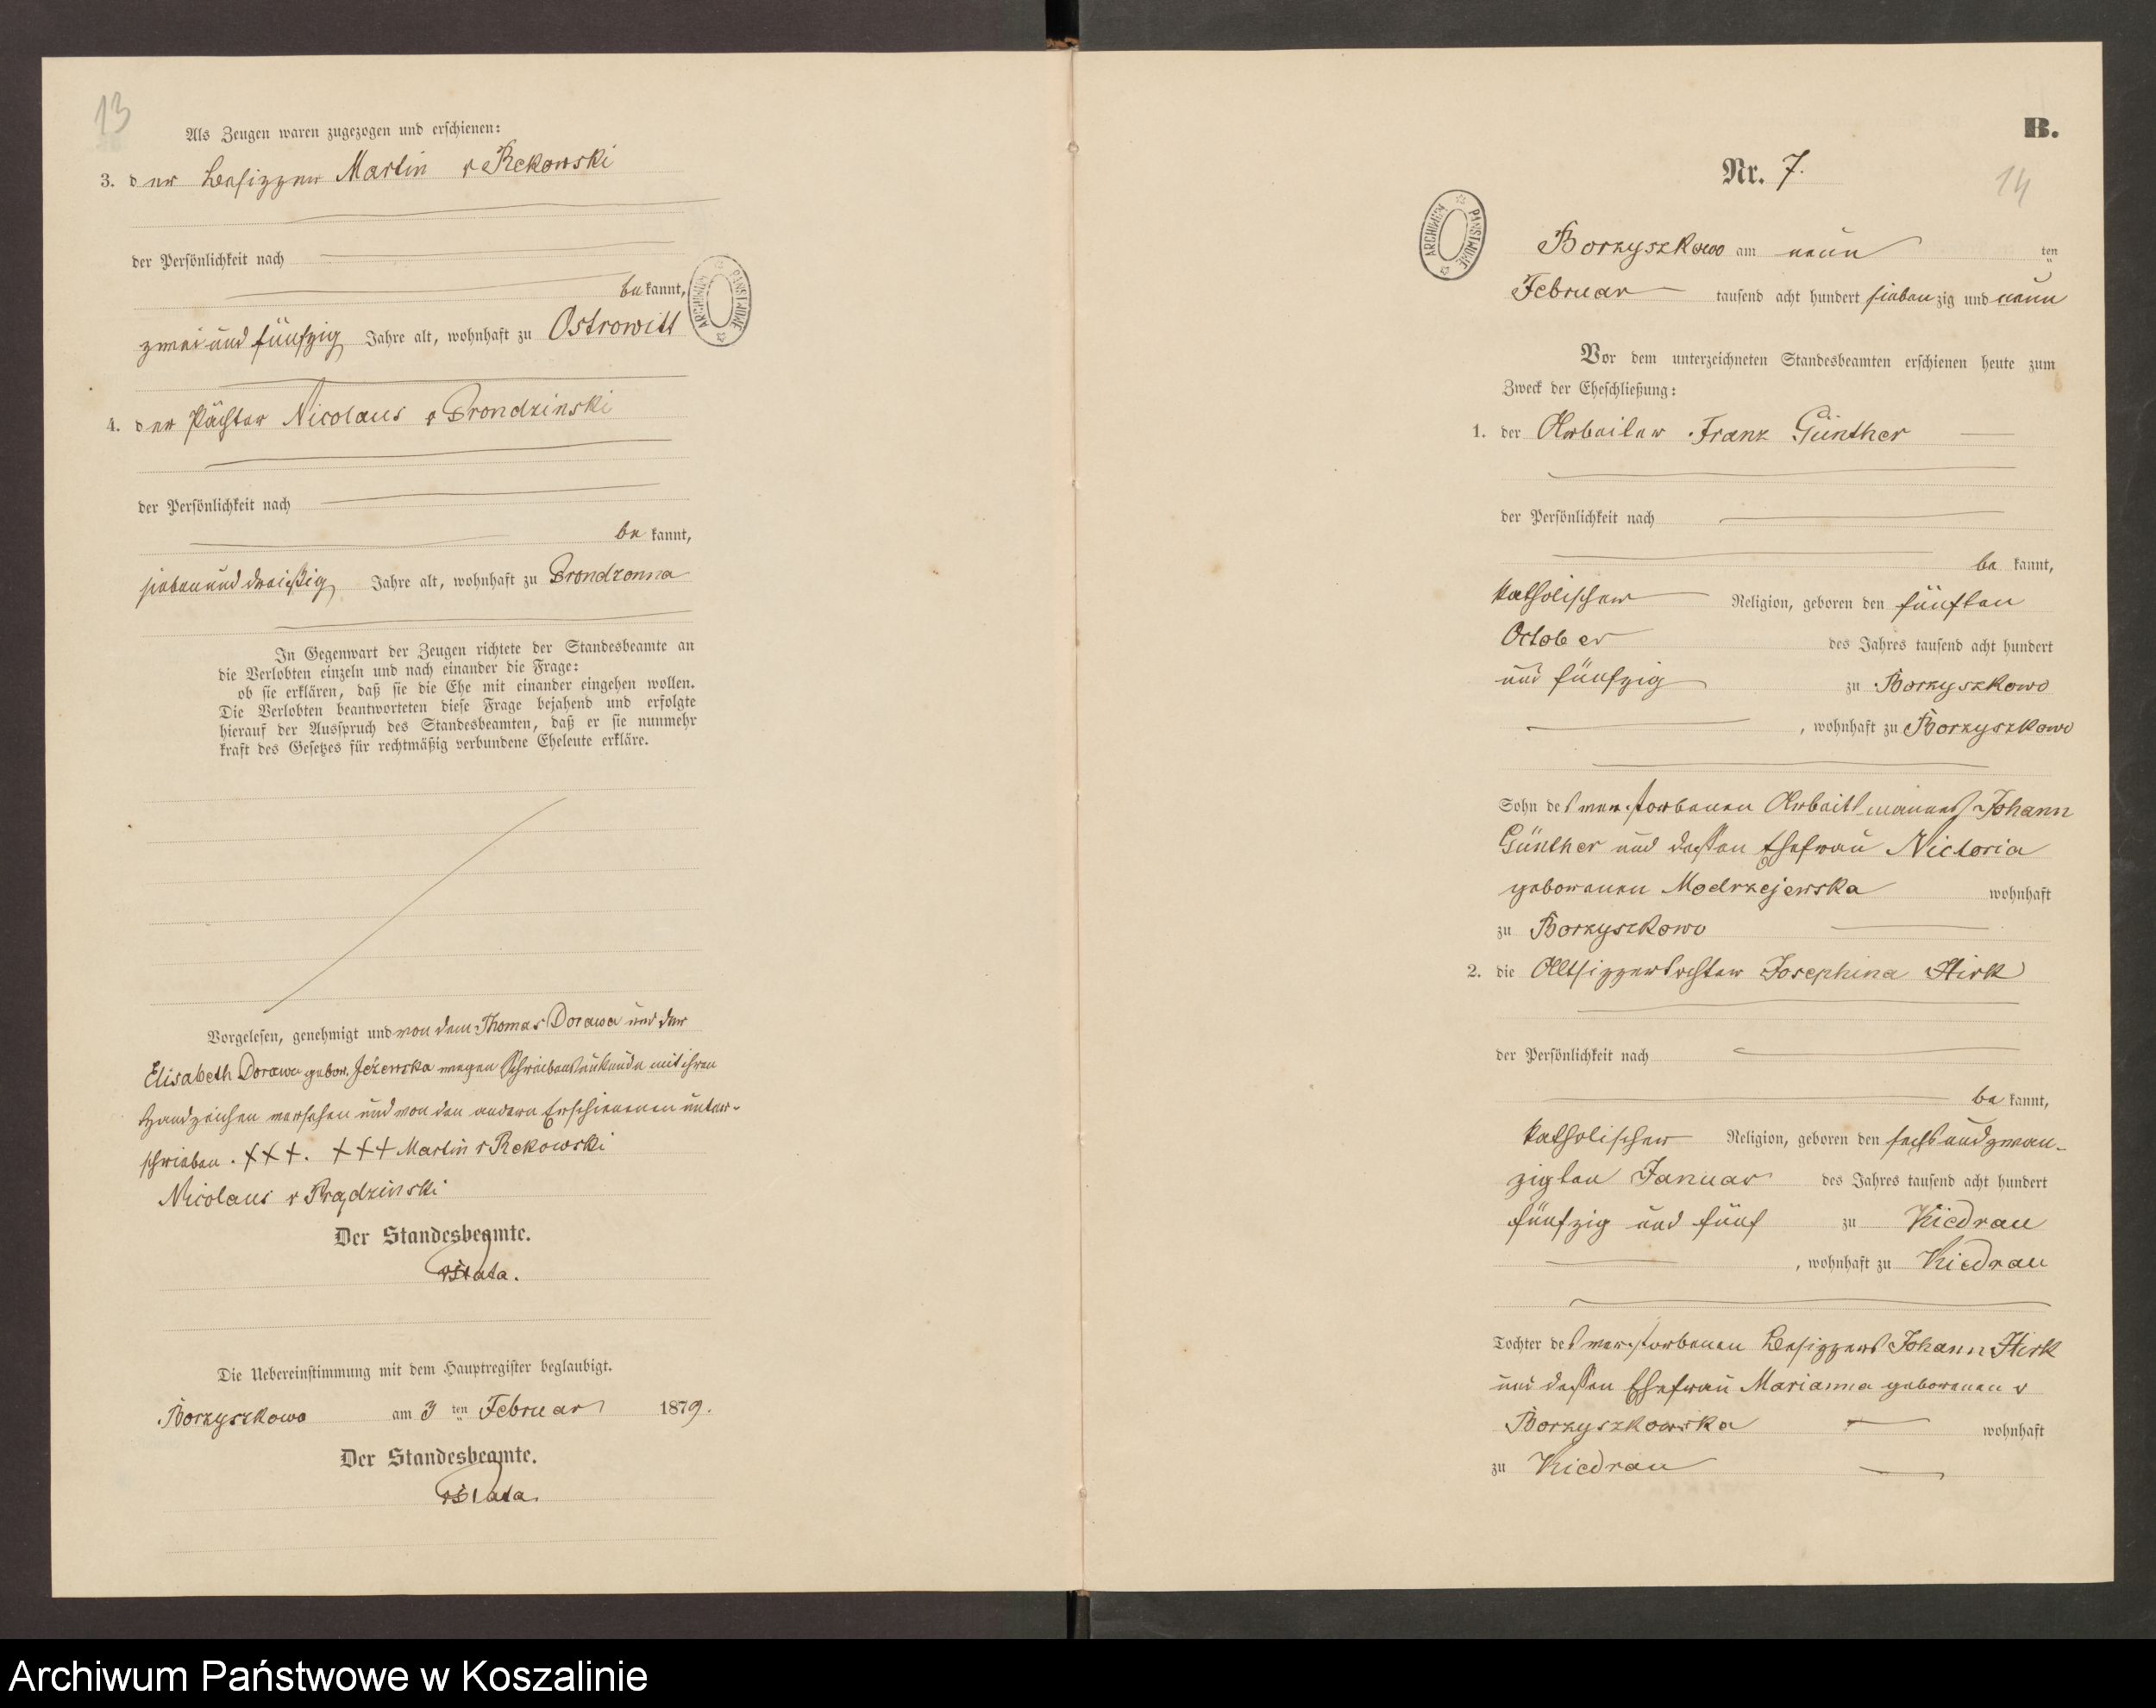 13
Als Zeugen waren zugezogen und erschienen:
3. der Besitzer Martin v Rekowski
der Persönlichkeit nach
bekannt,
zwei und fünfzig Jahre alt, wohnhaft zu Ostrowitt
4. der Pächter Nicolaus v Prondzinski
der Persönlichkeit nach
bekannt,
sieben und dreißig Jahre alt, wohnhaft zu Prondzonna
In Gegenwart der Zeugen richtete der Standesbeamte an
die Verlobten einzeln und nach einander die Frage:
ob sie erklären, daß sie die Ehe mit einander eingehen wollen.
Die Verlobten beantworteten diese Frage bejahend und erfolgte
hierauf der Ausspruch des Standesbeamten, daß er sie nunmehr
kraft des Gesetzes für rechtmäßig verbundene Eheleute erkläre.
Vorgelesen, genehmigt und von dem Thomas Dorawa und der
Elisabeth Dorawa gebor. Jeżewska wegen Schreibensunkunde mit ihren
Handzeichen versehen und von den andern Erschienenen unter-
schrieben. +++. +++ Martin v Rekowski
Nicolaus v Prądzinski
Der Standesbeamte.
Die Uebereinstimmung mit dem Hauptregister beglaubigt.
Borzyszkowo am 3 ten Februar 1879.
Der Standesbeamte.
ARCHIWUM PAŃSTWOWE
B.
Nr. 7.
14
ARCHIWUM PAŃSTWOWE
Borzyszkowo am neun ten
Februar tausend acht hundert siebenzig und neun
Vor dem unterzeichneten Standesbeamten erschienen heute zum
Zweck der Eheschließung:
1. der Arbeiter Franz Günther
der Persönlichkeit nach
bekannt,
katholischer Religion, geboren den fünften
October des Jahres tausend acht hundert
und fünfzig zu Borzyszkowo
, wohnhaft zu Borzyszkowo
Sohn des verstorbenen Arbeitsmannes Johann
Günther und dessen Ehefrau Victoria
geborenen Modrzejewska wohnhaft
zu Borzyszkowo
2. die Altsitzertochter Josephina Hirk
der Persönlichkeit nach
bekannt,
katholischer Religion, geboren den sechs und zwan-
zigten Januar des Jahres tausend acht hundert
fünfzig und fünf zu Kiedrau
, wohnhaft zu Kiedrau
Tochter des verstorbenen Besitzers Johann Hirk
und dessen Ehefrau Marianna geborenen v
Borzyszkowska wohnhaft
zu Kiedrau
Archiwum Państwowe w Koszalinie